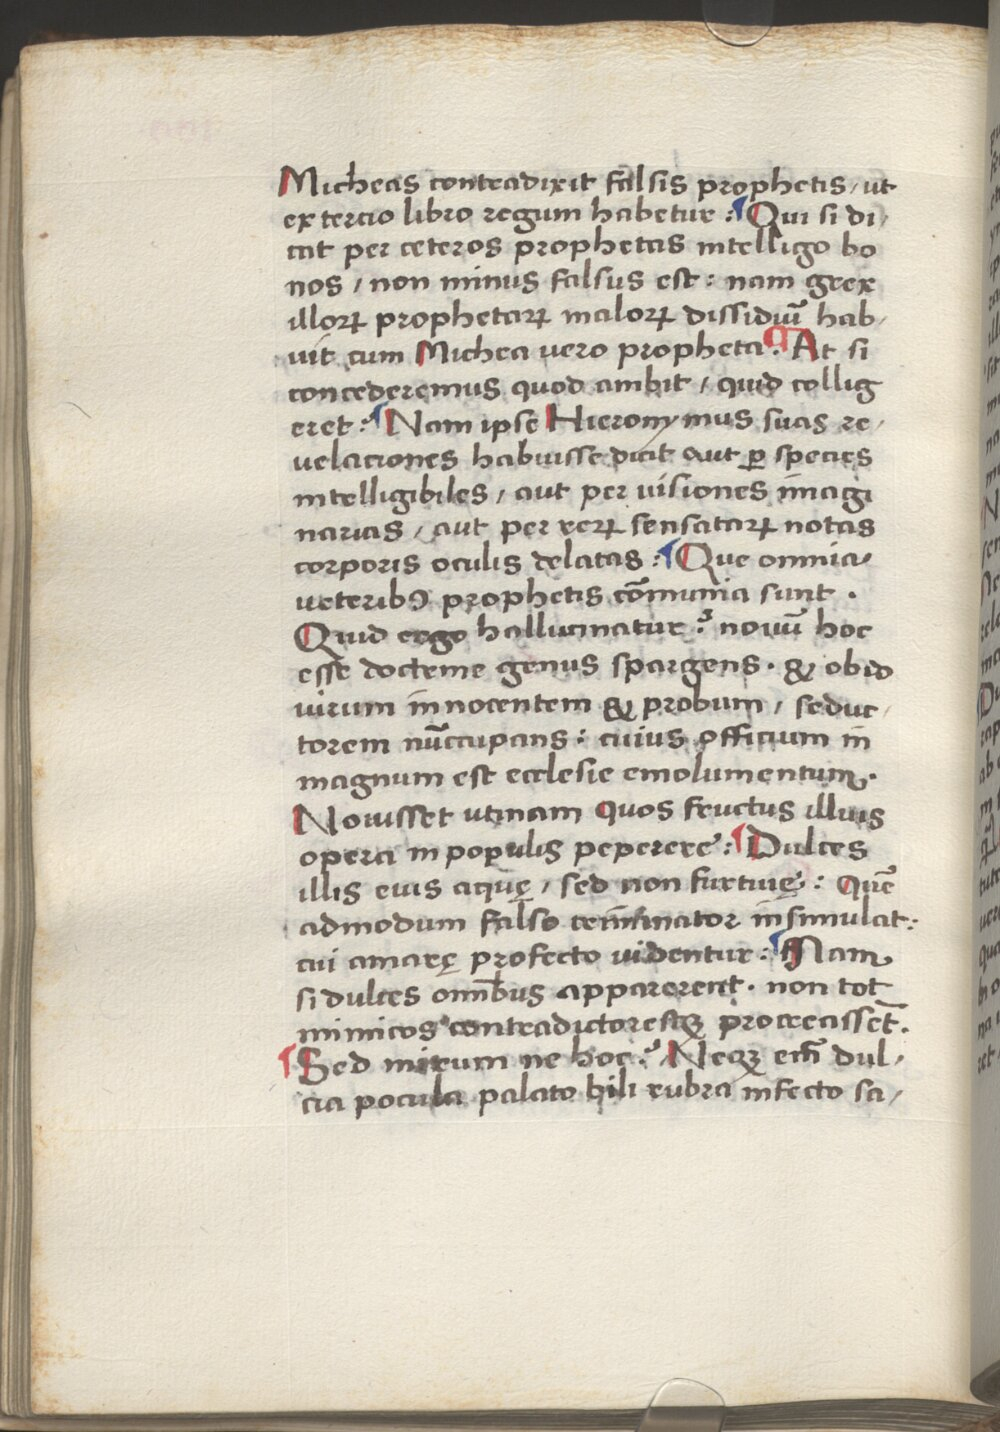 Micheas contradixit falsis prophetis / ut
ex tercio libro regum habetur : ¶ Qui si di/
cat per ceteros prophetas intelligo bo
nos / non minus falsus est : nam grex
illoꝝ prophetaꝝ maloꝝ dissidiuͫ hab/
uit cum Michea vero propheta . ¶ At si
concederemus quod ambit / quid collig
eret : ¶ Nam ipse Hieronymus suas re/
uelaciones habuisse dicit aut ꝑ species
intelligibiles / aut per uisiones imagi
narias / aut per reꝝ sensataꝝ notas
corporis oculis delatas : ¶ Que omnia
ueteribꝰ prophetis cōmunia sunt .
Quid ergo hallucinatur ? nouū hoc
esse docteme genus spargens . & obid
uirum innocentem & probum / seduc/
torem nūccupans : cuius officium in
magnum est ecclesie emolumentum .
Nouisset utinam quos fructus illius
opera in populis peperere : ¶ Dulces
illis eius aquę / sed non furtiuę : Quē
admodum falso criminator insimulat :
cui amarę profecto uidentur : ¶ Nam
si dulces omībus apparerent . non tot
inimicos contradictoresqꝫ procreassēt .
¶ Sed mirum ne hoc ? Neqꝫ eīm dul/
cia pocula palato bili rubra infecto sa/